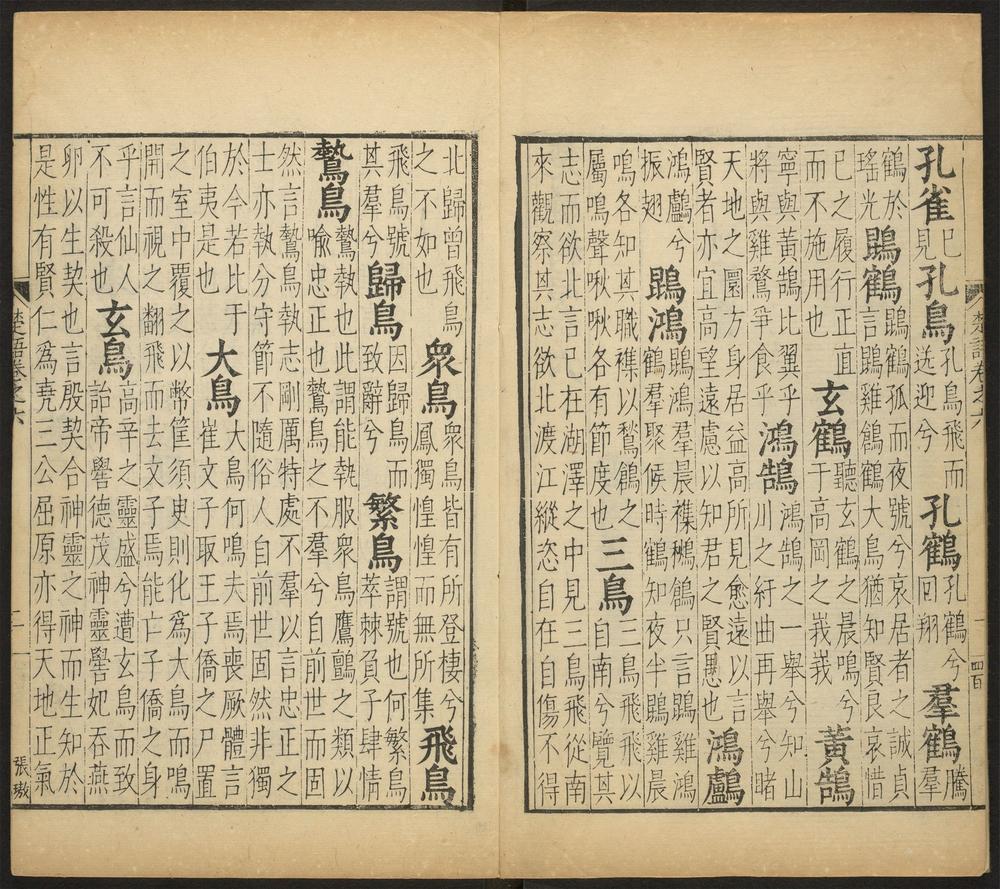 孔雀巳見孔鳥孔鳥飛而送迎兮孔鶴孔鶴兮回翔羣鶴騰羣
鶴於瑤光鵾鶴鵾鶴孤而夜號兮哀居者之誠貞言鵾雞鶬鶴大鳥猶知賢良哀惜
巳之履行正直而不施用也玄鶴聽玄鶴之晨鳴兮于高岡之峩峩黃鵠
寧與黃鵠比翼乎將與雞鶩爭食乎鴻鵠鴻鵠之一舉兮知山川之紆曲再舉兮睹
天地之圜方身居益高所見愈遠以言賢者亦宜高望遠慮以知君之賢愚也鴻鸕
鴻鸕兮振翅鵾鴻鵾鴻羣晨襍鶖鶬只言鵾雞鴻鶴羣聚候時鶴知夜半鵾雞晨
鳴各知其職襍以鶖鶬之屬鳴聲啾啾各有節度也三鳥三鳥飛以自南兮覽其
志而欲北言巳在湖澤之中見三鳥飛從南來觀察其志欲北渡江縱恣自在自傷不得
楚語卷之六 一 四百
北歸曾飛鳥之不如也衆鳥衆鳥皆有所登棲兮鳳獨惶惶而無所集飛鳥
飛鳥號其羣兮歸鳥因歸鳥而致辭兮繁鳥謂號也何繁鳥萃棘負子肆情
鷙鳥鷙執也此謂能執服衆鳥鷹鸇之類以喻忠正也鷙鳥之不羣兮自前世而固
然言鷙鳥執志剛厲特處不羣以言忠正之士亦執分守節不隨俗人自前世固然非獨
於今若比于伯夷是也大鳥大鳥何鳴夫焉喪厥體言崔文子取王子僑之尸置
之室中覆之以幣筐須臾則化爲大鳥而鳴開而視之翻飛而去文子焉能亡子僑之身
乎言仙人不可殺也玄鳥高辛之靈盛兮遭玄鳥而致詒帝嚳德茂神靈嚳妃吞燕
卵以生契也言殷契合神靈之神而生知於是性有賢仁爲堯三公屈原亦得天地正氣
楚語卷之六 二 張